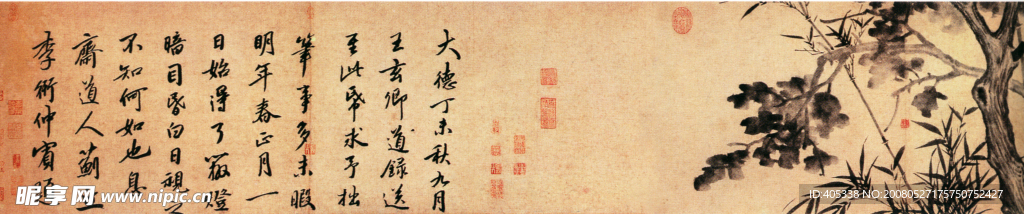 大德丁未秋九月
王玄卿道錄送
至此帋求予拙
筆事多未暇
明年春正月一
日始得了燈
暗目昏白日視
不知何如也息
齋道人薊丘
李衎仲賓
昵享网 www.nipic.cn
ID:405338 NO:20080527175750752427